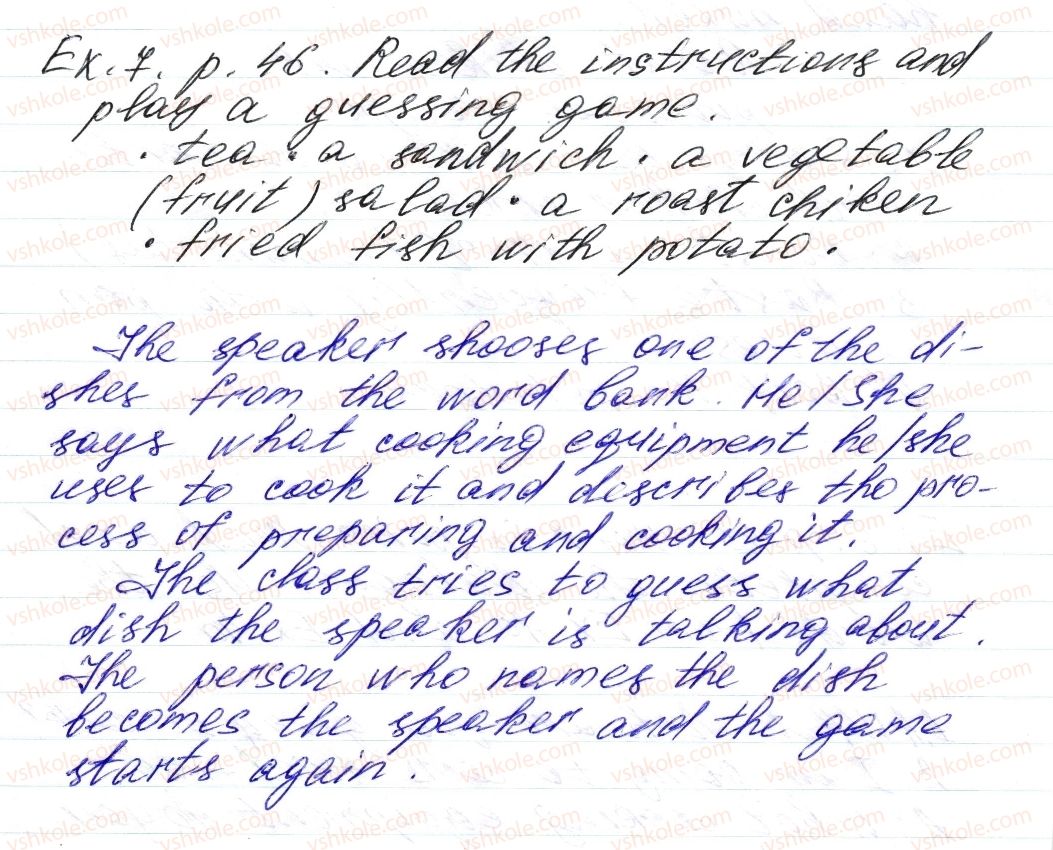 Ex. 7. p. 46. Read the instructions and
play a guessing game.
• tea • a sandwich • a vegetable
(fruit) salad • a roast chiken
• fried fish with potato.
The speaker shooses one of the di-
shes from the word bank. He/She
says what cooking equipment he/she
uses to cook it and describes tho pro-
cess of preparing and cooking it.
The class tries to guess what
dish the speaker is talking about.
The person who names the dish
becomes the speaker and the game
starts again.